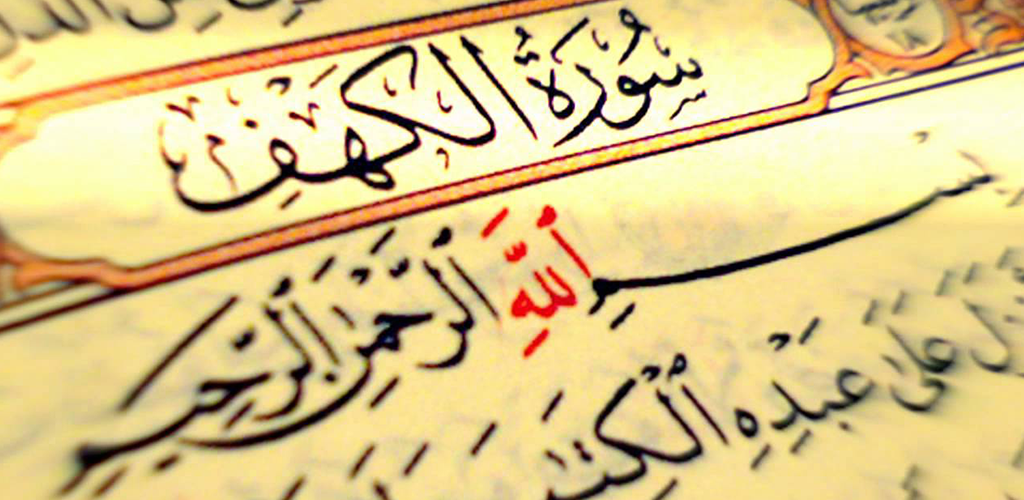 سُورَةُ الكَهْفِ
بِسْمِ ٱللَّهِ ٱلرَّحْمَٰنِ ٱلرَّحِيمِ
عَلَىٰ عَبْدِهِ ٱلْكِتَٰبَ